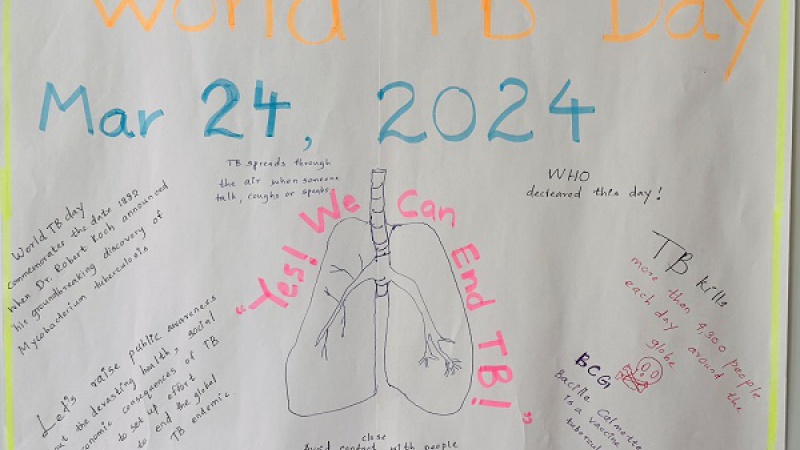 World TB Day
Mar 24, 2024
TB spreads through
the air when someone
talk, coughs or speaks.
WHO
decleared this day!
"Yes! We Can End TB!"
World TB day
commemorates the date 1882
when Dr. Robert Koch announced
his groundbreaking discovery of
Mycobacterium tuberculosis
TB kills
more than
each day around the
globe
people
Let's raise public awareness
the devasting health, social
consequences of TB
to set up effort
to end the global
TB endemic
BCG
Bacille Calmette
is a vaccine
close
Avoid contact with people